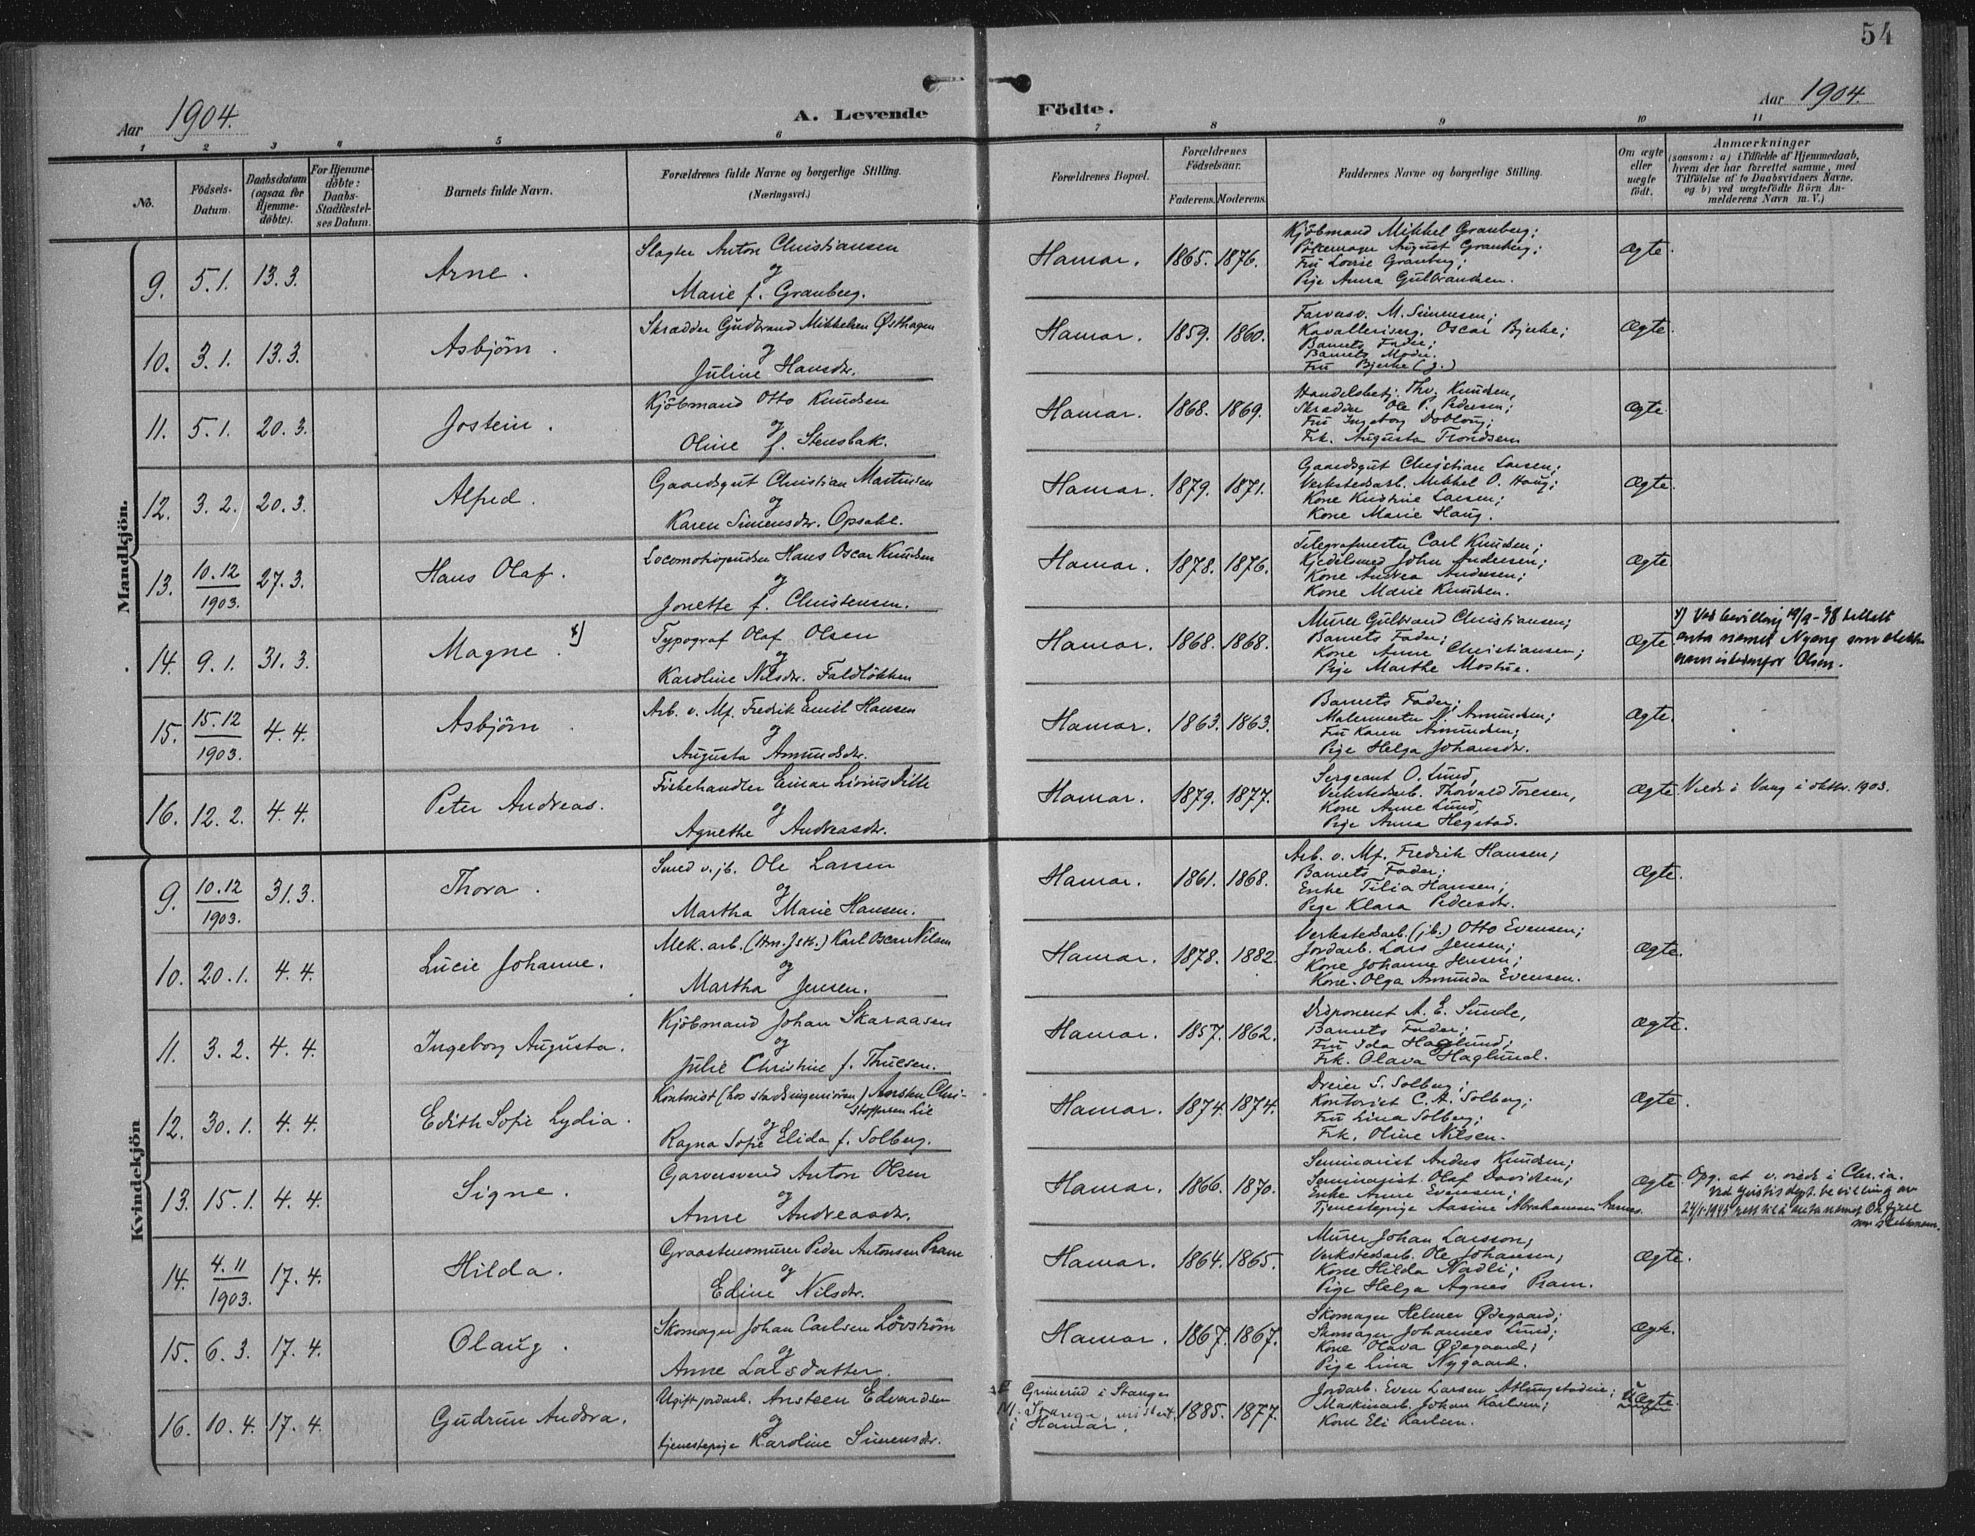 54
Aar 1904.
A. Levende Födte.
Aar 1904.
1 2 3 4 5 6 7 8 9 10 11
No.
Födsels-Datum.
Daabsdatum (ogsaa for Hjemme-döbte).
For Hjemme-döbte: Daabs-Stadfæstel-ses Datum.
Barnets fulde Navn.
Forældrenes fulde Navne og borgerlige Stilling.
(Næringsvei.)
Forældrenes Bopæl.
Forældrenes Födselsaar.
Faderens. Moderens.
Faddernes Navne og borgerlige Stilling.
Om ægte eller uægte födt.
Anmærkninger
(saasom: a) i Tilfælde af Hjemmedaab,
hvem der har forrettet samme, med
Tilföielse af to Daabsvidners Navne,
og b) ved uægtefödte Börn An-
melderens Navn m. V.)
Mandkjön.
9. 5.1. 13.3. Arne.
Slagter Anton Christiansen
og
Marie f. Granberg.
Hamar. 1865. 1876.
Kjöbmand Mikkel Granberg;
August Granberg;
Fru Lovise Granberg;
Pige Anna Gulbrandsen.
Ægte.
10. 3.1. 13.3. Asbjörn.
Skrædder Gudbrand Mikkelsen Østhagen
og
Juline Hansdr.
Hamar. 1859. 1860.
Farvesv. M. Simensen;
Kavalleriserg. Oscar Bjerke;
Barnets Fader;
Barnets Moder.
Fru Bjerke (g.)
Ægte.
11. 5.1. 20.3. Jostein.
Kjöbmand Otto Knudsen
og
Oline f. Stensbak.
Hamar. 1868. 1869.
Handelsbetj. Thv. Knudsen,
Skrædder Ole P. Pedersen;
Fru Ingeborg Doblong;
Frk. Augusta Trondsen
Ægte.
12. 3.2. 20.3. Alfred.
Gaardsgut Christian Martinsen
og
Karen Simensdr. Opsahl.
Hamar. 1879. 1871.
Gaardsgut Christian Larsen;
Verkstedsarb. Mikkel O. Haug;
Kone Kristine Larsen;
Kone Marie Haug.
Ægte.
13. 10.12 1903. 27.3. Hans Olaf.
Locomotivpudser Hans Oscar Knudsen
og
Jonette f. Christensen.
Hamar. 1878. 1876.
Telegrafmester Carl Knudsen;
Kjedelsmed John Andersen;
Kone Andrea Andersen;
Kone Marie Knudsen.
Ægte
14. 9.1. 31.3. Magne. x)
Typograf Olaf Olsen
og
Karoline Nilsdr. Faldlökken
Hamar. 1868. 1868.
Murer Gulbrand Christiansen;
Barnets Fader;
Kone Anne Christiansen;
Pige Marthe Mostue.
Ægte.
x) Ved bevilling 19/9-38 tillatt
anta navnet Nyeng som slekts-
navn istedenfor Olsen.
15. 15.12 1903. 4.4. Asbjörn.
Arb. v. Mf. Fredrik Emil Hansen
og
Augusta Amundsdr.
Hamar. 1863. 1863.
Barnets Fader;
Malermester A. Amundsen;
Fru Karen Amundsen;
Pige Helga Johansdr.
Ægte.
16. 12.2. 4.4. Peter Andreas.
Fiskehandler Einar Livius
og
Agnethe Andreasdr.
Hamar. 1879. 1877.
Sergeant O. Lund,
Verkstedsarb. Thorvald Toresen,
Kone Anne Lund,
Pige Anna Hegstad.
Ægte.
Viede i Vang i oktbr. 1903.
Kvindekjön
9. 10.12 1903. 31.3. Thora.
Smed v. jb. Ole Larsen
og
Martha Marie Hansen.
Hamar. 1861. 1868.
Arb. v. Mf. Fredrik Hansen;
Barnets Fader;
Enke Tilia Hansen;
Pige Klara Pedersdr.
Ægte.
10. 20.1. 4.4. Lucie Johanne.
Mek. arb. (Hm. Jstb.) Karl Oscar Nilsen
og
Martha Jensen.
Hamar. 1878. 1882.
Verkstedsarb. (jb.) Otto Evensen;
Jordarb. Lars Jensen;
Kone Johanne Jensen;
Kone Olga Amunda Evensen.
Ægte.
11. 3.2. 4.4. Ingeborg Augusta.
Kjöbmand Johan Skaraasen
og
Julie Christine f. Thuesen.
Hamar. 1857. 1862.
Disponent A. E. Sunde,
Barnets Fader;
Fru Ida Haglund;
Frk. Olava Haglund.
Ægte.
12. 30.1. 4.4. Edith Sofie Lydia.
Kontorist (hos stadsingeniören) Karsten Chri-
stoffersen Lie
og
Ragna Sofie Elida f. Solberg.
Hamar. 1874. 1874.
Dreier S. Solberg;
Kontorist C. A. Solberg;
Fru Lina Solberg;
Frk. Oline Nilsen.
Ægte.
13. 15.1. 4.4. Signe.
Garversvend Anton Olsen
og
Anne Andreasdr.
Hamar. 1866. 1870.
Seminarist Anders Knudsen;
Seminarist Olaf Davidsen;
Enke Anne Evensen;
Tjenestepige Aasine Abrahamsen
Ægte.
Opg. at v. viede i Chr.ia.
Ved justisdept. bevilling av
rett til å anta navnet
som slektsnavn.
14. 4.11 1903. 17.4. Hilda.
Graastensmurer Peder Antonsen Pram
og
Edine Nilsdr.
Hamar. 1864. 1865.
Murer Johan Larsson;
Verkstedsarb. Ole Johansen;
Kone Hilda Nadli;
Pige Helga Agnes Pram.
Ægte.
15. 6.3. 17.4. Olaug.
Skomager Johan Carlsen Lövström
og
Anne Larsdatter.
Hamar. 1867. 1867.
Skomager Helmer Ødegaard;
Skomager Johannes Lund;
Kone Olava Ødegaard;
Pige Lina Nygaard.
Ægte.
16. 10.4. 17.4. Gudrun Andora.
Ugift jordarb. Ansteen Edvardsen
og
tjenestepige Karoline Simensdr.
Grimerud i Stange
i Hamar.
1885. 1877.
Jordarb. Even Larsen
Maskinarb. Johan Karlsen;
Kone Eli Karlsen.
UÆgte.